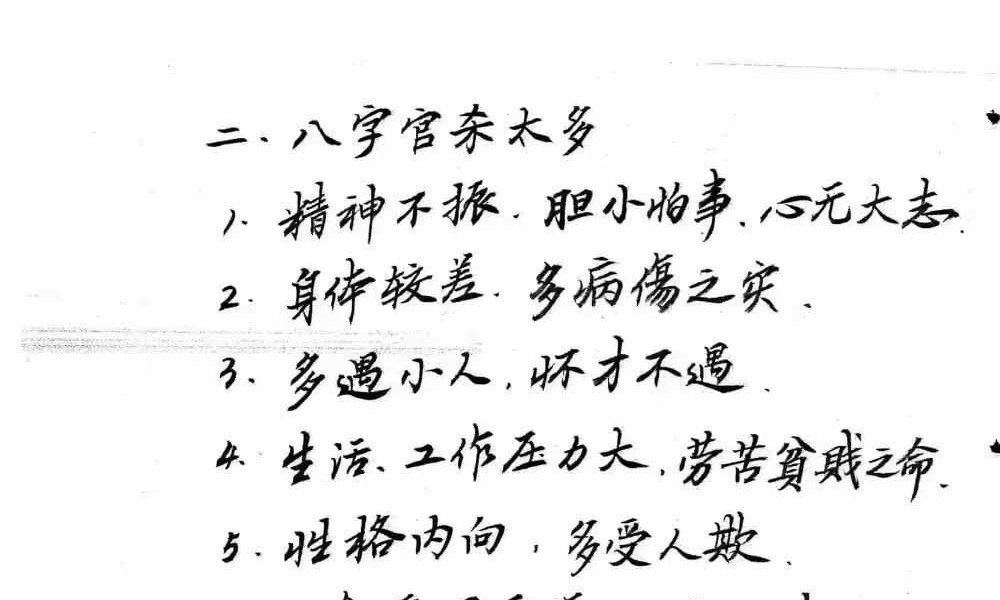 二、八字官杀太多
1. 精神不振. 胆小怕事、心无大志.
2. 身体较差. 多病傷之灾.
3. 多遇小人, 怀才不遇.
4. 生活、工作压力大, 劳苦貧賎之命.
5. 性格内向, 多受人欺.